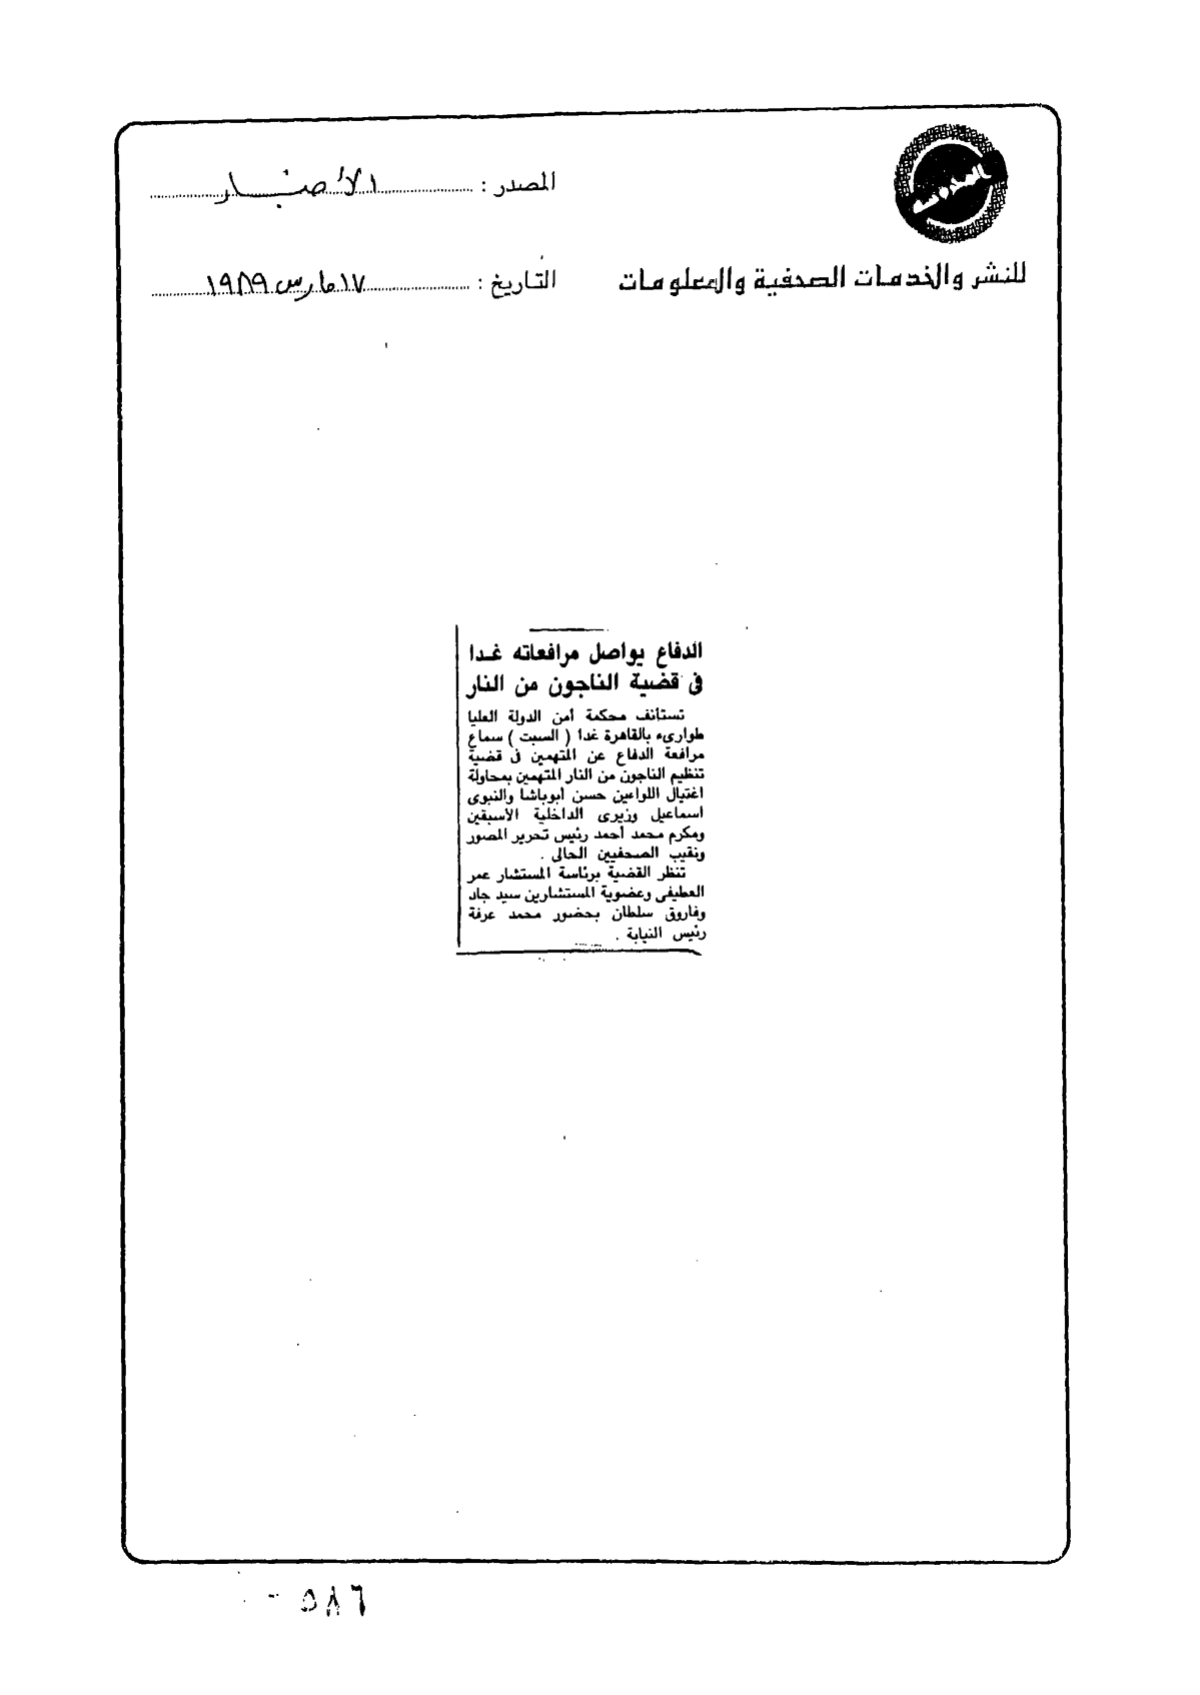 المصدر : الأخبار
للنشر والخدمات الصحفية والمعلومات
التاريخ : ١٧ مارس ١٩٨٩
الدفاع يواصل مرافعاته غدا
فى قضية الناجون من النار
تستأنف محكمة أمن الدولة العليا
طوارىء بالقاهرة غدا ( السبت ) سماع
مرافعة الدفاع عن المتهمين فى قضية
تنظيم الناجون من النار المتهمين بمحاولة
اغتيال اللواءين حسن أبوباشا والنبوى
اسماعيل وزيرى الداخلية الأسبقين
ومكرم محمد أحمد رئيس تحرير المصور
ونقيب الصحفيين الحالى .
تنظر القضية برئاسة المستشار عمر
العطيفى وعضوية المستشارين سيد جاد
وفاروق سلطان بحضور محمد عرفة
رئيس النيابة .
٥٨٦